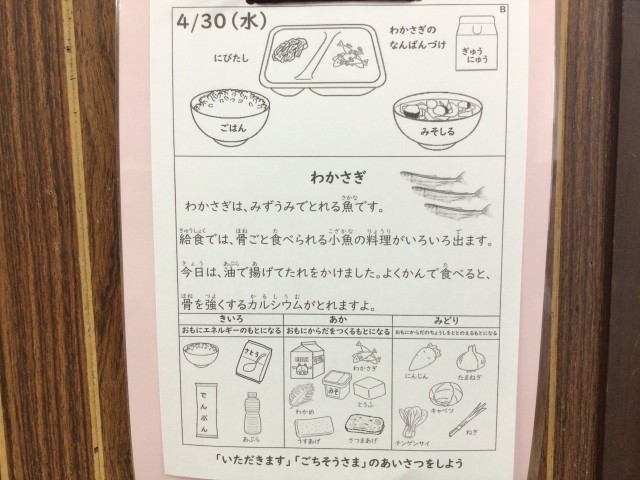 4/30(水)
B
にびたし
わかさぎの
なんばんづけ
ぎゅう
にゅう
ごはん
みそしる
わかさぎ
わかさぎは、みずうみでとれる魚です。
給食では、骨ごと食べられる小魚の料理がいろいろ出ます。
今日は、油で揚げてたれをかけました。よくかんで食べると、
骨を強くするカルシウムがとれますよ。
きいろ
あか
みどり
おもにエネルギーのもとになる
おもにからだをつくるもとになる
おもにからだのちょうしをととのえるもとになる
さとう
でんぷん
あぶら
わかさぎ
みそ
わかめ
とうふ
うすあげ
さつまあげ
にんじん
たまねぎ
キャベツ
チンゲンサイ
ねぎ
「いただきます」「ごちそうさま」のあいさつをしよう